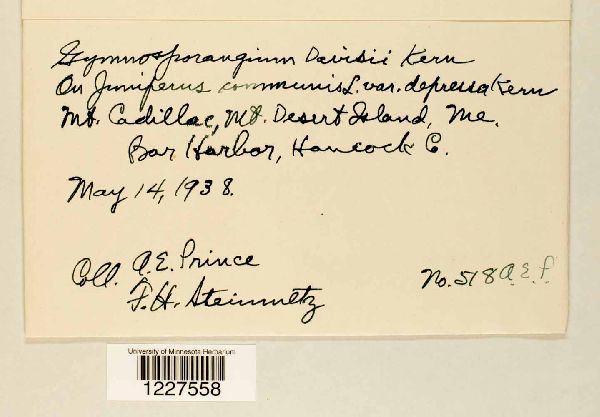 Gymnosporangium Davisii Kern
On Juniperus communis L. var. depressa Kern
Mt. Cadillac, Mt. Desert Island, Me.
Bar Harbor, Hancock Co.
May 14, 1938.
Coll. A.E. Prince
F.H. Steinmetz
No. 518 A.E.P.
University of Minnesota Herbarium
1227558